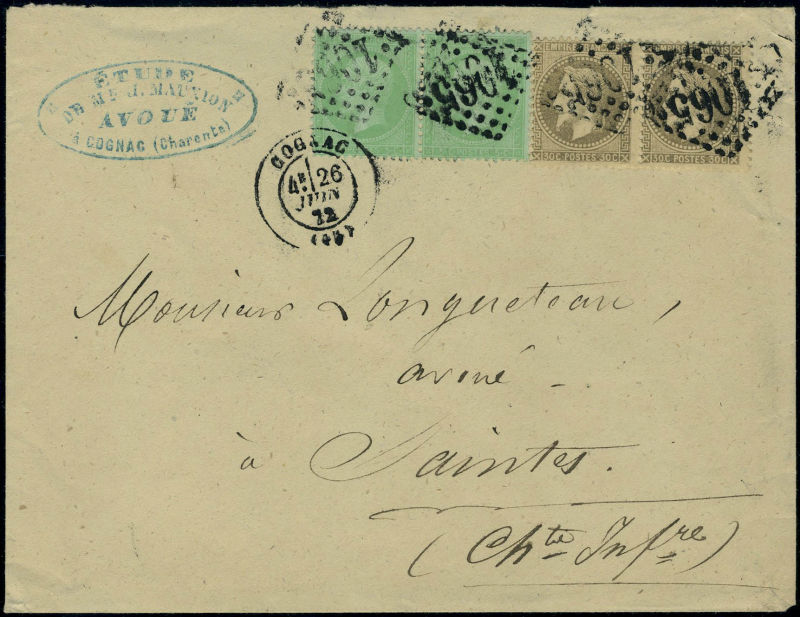 ÉTUDE
DE Me J. MAUXION
AVOUÉ
à COGNAC (Charente)
COGNAC
4E 26
JUIN
72
(15)
1065
1065
1065
EMPIRE FRANÇAIS
30C POSTES 30C
30C POSTES 30C
Monsieur Longueteau,
avoué -
à Saintes.
(Chte Infre)